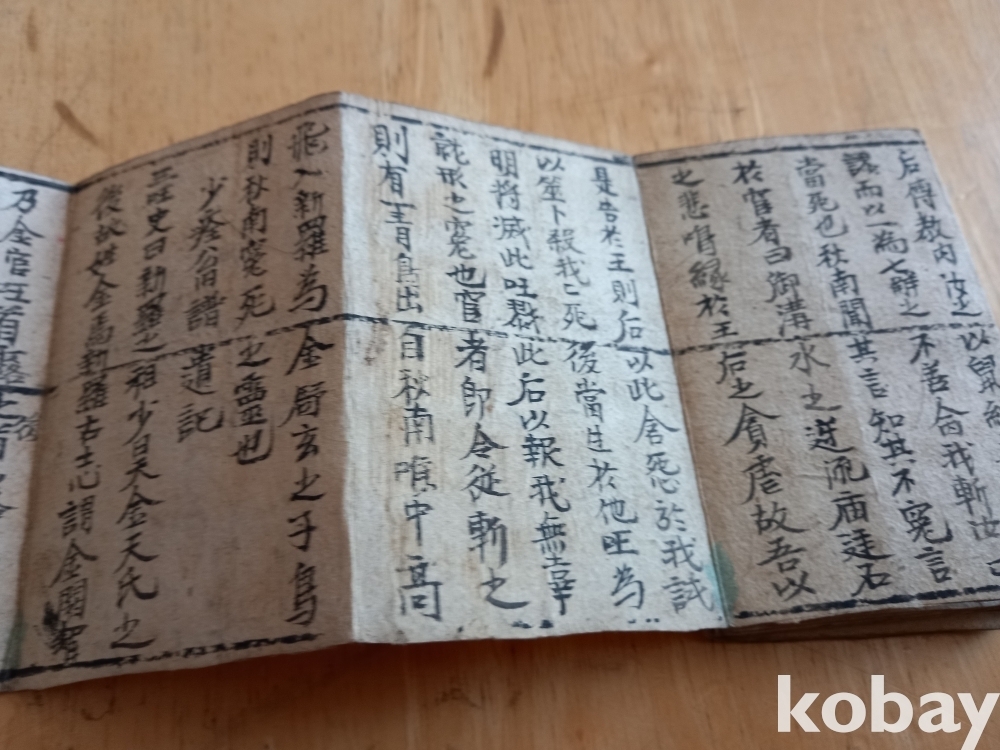 后傳教內泣之以鼠
誤而以一為七辭之不善命我斬汝
當死也秋南聞其言知其不冤言
於官者曰御溝水之逆流庙廷石
之悲啼緣於王后之貪虐故吾以
是告於王則后以此含怨於我試
以筮卜殺我〻死後當生於他国為
明將滅此吐戮此后以報我無辜
就形之冤也官者即令従斬之
則有一青鳥出自秋南噴中高
飛入新羅為金局玄之子烏
則秋南冤死之靈也
少癸翁譜遺記
三国史曰新羅之祖少白天金天氏之
後故姓金焉新羅古志謂金閼智
乃金官王首露之後
kobay